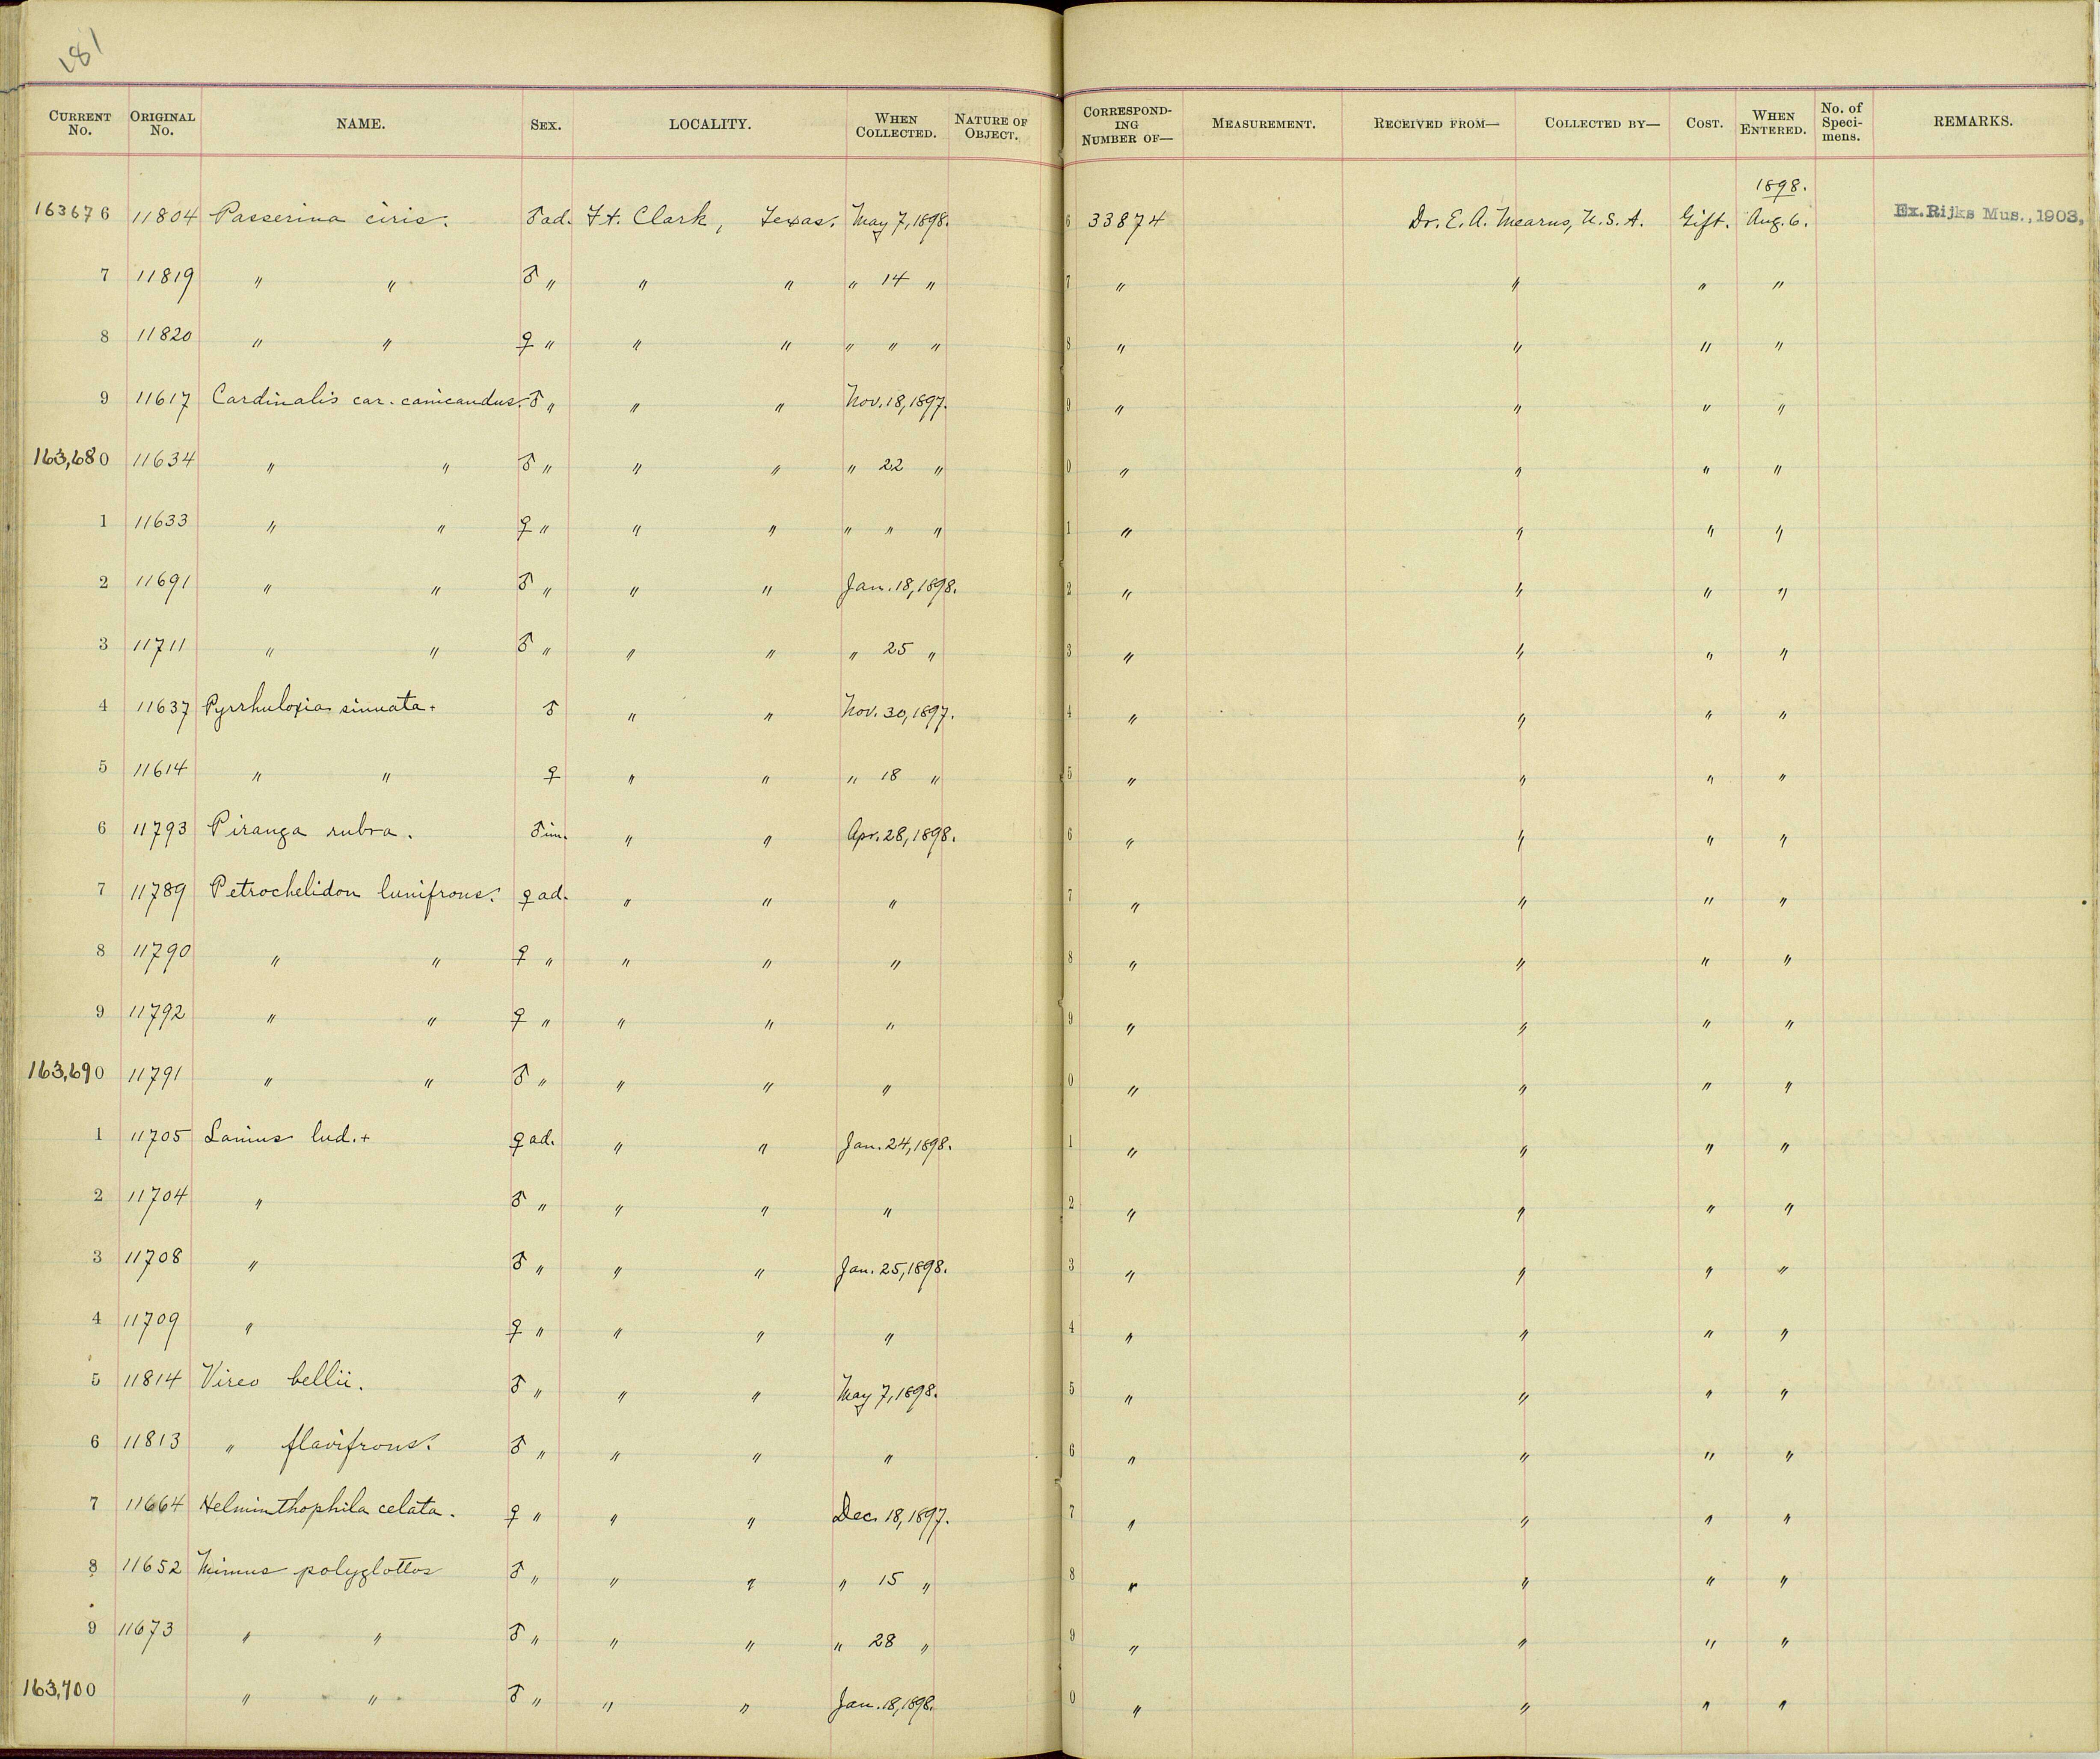 181
CURRENT No. ORIGINAL No. NAME. SEX. LOCALITY. WHEN COLLECTED. NATURE OF OBJECT. CORRESPONDING NUMBER OF— MEASUREMENT. RECEIVED FROM— COLLECTED BY— COST. WHEN ENTERED. No. of Specimens. REMARKS.
1898.
163676 11804 Passerina ciris. ♂ ad. Ft. Clark, Texas. May 7, 1898. 6 33874 Dr. E. A. Mearns, U.S.A. Gift. Aug. 6. Ex. Rijks Mus., 1903.
7 11819 " " ♂ " " " " 14 " 7 " " " "
8 11820 " " ♀ " " " " " " 8 " " " "
9 11617 Cardinalis car. canicaudus. ♂ " " " Nov. 18, 1897. 9 " " " "
163,680 11634 " " ♂ " " " " 22 " 0 " " " "
1 11633 " " ♀ " " " " " " 1 " " " "
2 11691 " " ♂ " " " Jan. 18, 1898. 2 " " " "
3 11711 " " ♂ " " " " 25 " 3 " " " "
4 11637 Pyrrhuloxia sinuata + ♂ " " Nov. 30, 1897. 4 " " " "
5 11614 " " ♀ " " " 18 " 5 " " " "
6 11793 Piranga rubra. ♂ im. " " Apr. 28, 1898. 6 " " " "
7 11789 Petrochelidon lunifrons. ♀ ad. " " " 7 " " " "
8 11790 " " ♀ " " " " 8 " " " "
9 11792 " " ♀ " " " " 9 " " " "
163,690 11791 " " ♂ " " " " 0 " " " "
1 11705 Lanius lud. + ♀ ad. " " Jan. 24, 1898. 1 " " " "
2 11704 " ♂ " " " " 2 " " " "
3 11708 " ♂ " " " Jan. 25, 1898. 3 " " " "
4 11709 " ♀ " " " " 4 " " " "
5 11814 Vireo bellii. ♂ " " " May 7, 1898. 5 " " " "
6 11813 " flavifrons. ♂ " " " " 6 " " " "
7 11664 Helminthophila celata. ♀ " " " Dec. 18, 1897. 7 " " " "
8 11652 Mimus polyglottos ♂ " " " " 15 " 8 " " " "
9 11673 " " ♂ " " " " 28 " 9 " " " "
163,700 " " ♂ " " " Jan. 18, 1898. 0 " " " "